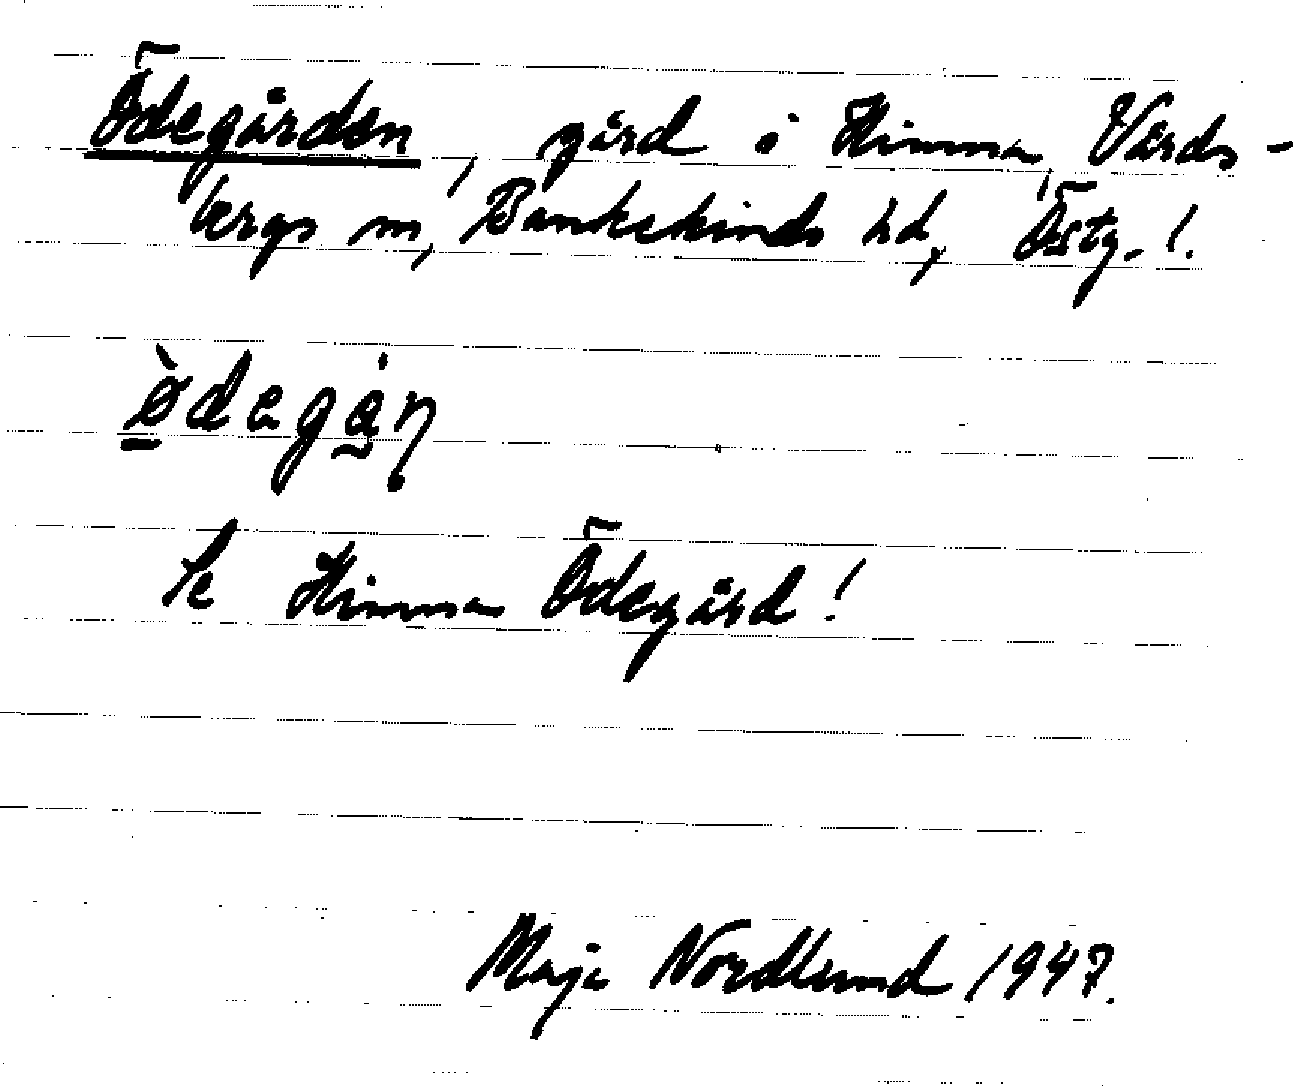 Ödegården, gård i Himma, Vårds-
bergs sn, Bankekinds hd, Östg. l.
ödegån
Se Himma Ödegård!
Maja Nordlund 1947.